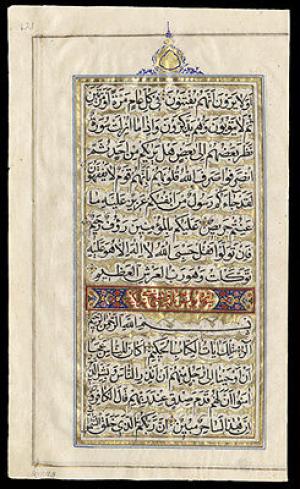 أولا يرون أنهم يفتنون في كل عام مرة أو مرتين
ثم لا يتوبون ولا هم يذكرون وإذا ما أنزلت سورة
نظر بعضهم إلى بعض هل يريكم من أحد ثم
انصرفوا صرف الله قلوبهم بأنهم قوم لا يفقهون
لقد جاءكم رسول من أنفسكم عزيز عليه ما
عنتم حريص عليكم بالمؤمنين رؤف رحيم
فإن تولوا فقل حسبي الله لا إله إلا هو عليه
توكلت وهو رب العرش العظيم
بسم الله الرحمن الرحيم
الر تلك آيات الكتاب الحكيم أكان للناس عجبا
أن أوحينا إلى رجل منهم أن أنذر الناس وبشر الذين
آمنوا أن لهم قدم صدق عند ربهم قال الكافرون
إن هذا لساحر مبين إن ربكم الله الذي خلق